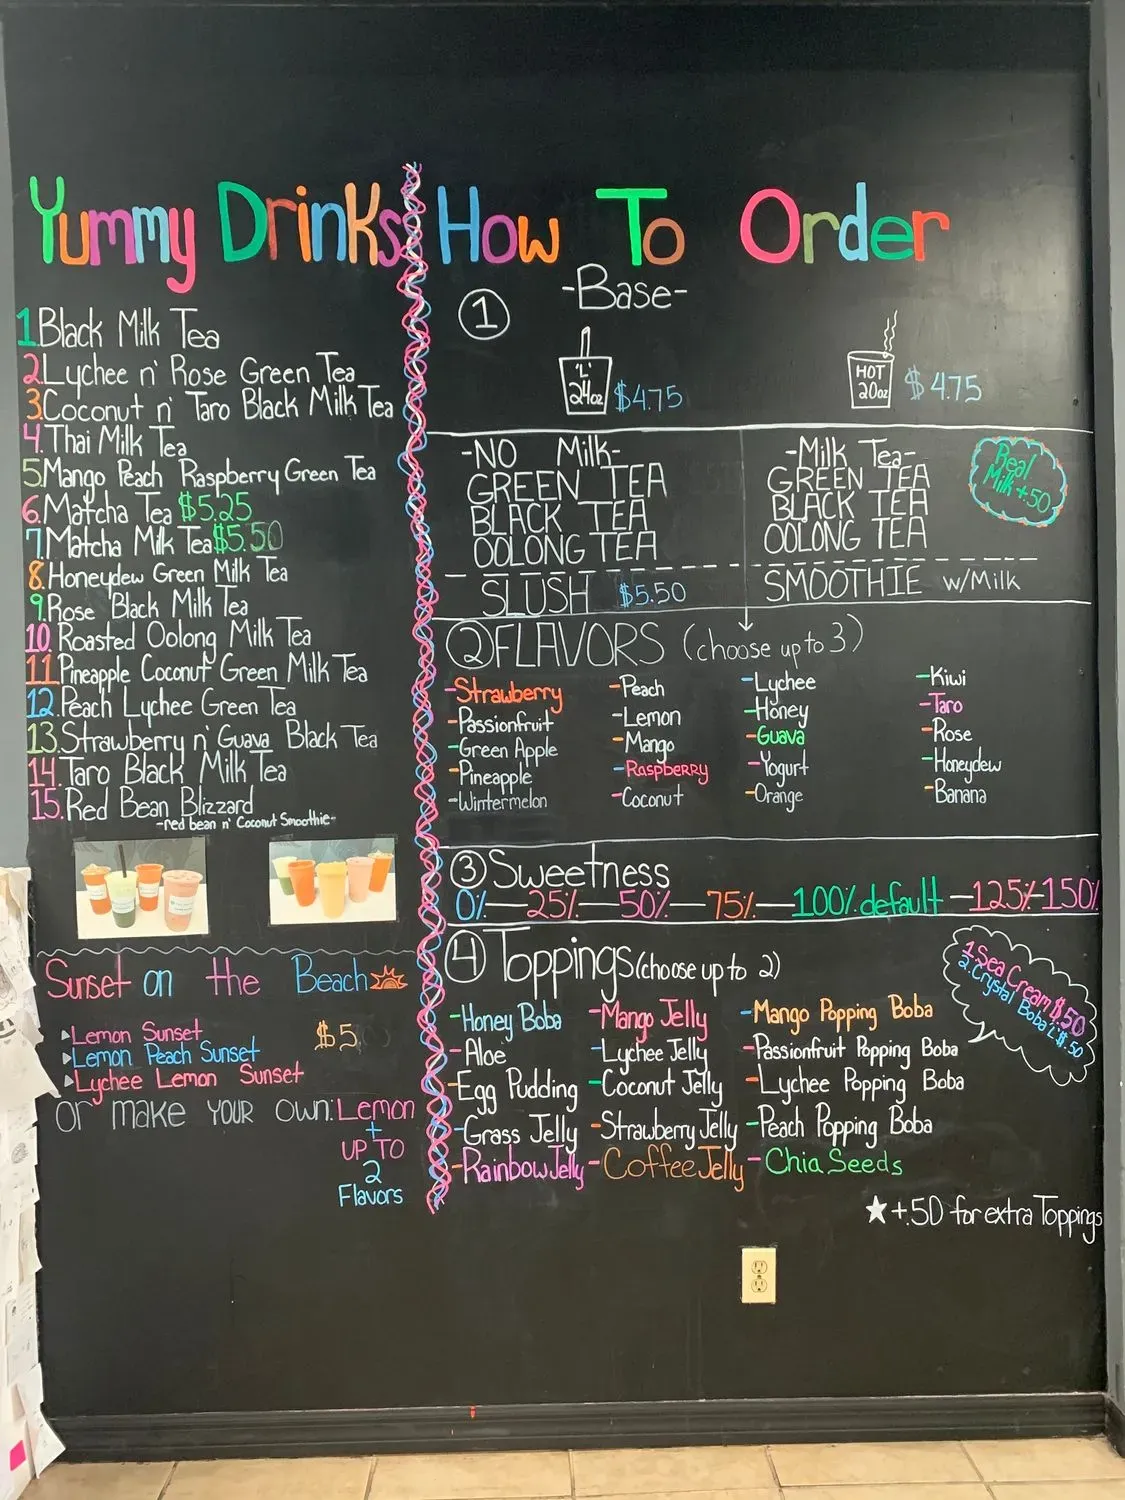 Yummy Drinks
1.Black Milk Tea
2.Lychee n' Rose Green Tea
3.Coconut n' Taro Black Milk Tea
4.Thai Milk Tea
5.Mango Peach Raspberry Green Tea
6.Matcha Tea $5.25
7.Matcha Milk Tea $5.50
8.Honeydew Green Milk Tea
9.Rose Black Milk Tea
10.Roasted Oolong Milk Tea
11.Pineapple Coconut Green Milk Tea
12.Peach Lychee Green Tea
13.Strawberry n' Guava Black Tea
14.Taro Black Milk Tea
15.Red Bean Blizzard
-red bean n' Coconut Smoothie-
Sunset on the Beach
Lemon Sunset $5
Lemon Peach Sunset
Lychee Lemon Sunset
or make YOUR OWN: Lemon
+
UP TO
2
Flavors
How To Order
1 -Base-
'L'
24oz $4.75
HOT
20oz $4.75
-NO Milk-
GREEN TEA
BLACK TEA
OOLONG TEA
SLUSH $5.50
-Milk Tea-
GREEN TEA
BLACK TEA
OOLONG TEA
SMOOTHIE w/Milk
Real
Milk +.50
2 FLAVORS (choose up to 3)
-Strawberry
-Passionfruit
-Green Apple
-Pineapple
-Wintermelon
-Peach
-Lemon
-Mango
-Raspberry
-Coconut
-Lychee
-Honey
-Guava
-Yogurt
-Orange
-Kiwi
-Taro
-Rose
-Honeydew
-Banana
3 Sweetness
0%—25%—50%—75%—100% default—125%-150%
4 Toppings (choose up to 2)
1.Sea Cream $.50
2.Crystal Boba $.50
-Honey Boba
-Aloe
-Egg Pudding
-Grass Jelly
-Rainbow Jelly
-Mango Jelly
-Lychee Jelly
-Coconut Jelly
-Strawberry Jelly
-Coffee Jelly
-Mango Popping Boba
-Passionfruit Popping Boba
-Lychee Popping Boba
-Peach Popping Boba
-Chia Seeds
★+.50 for extra Toppings